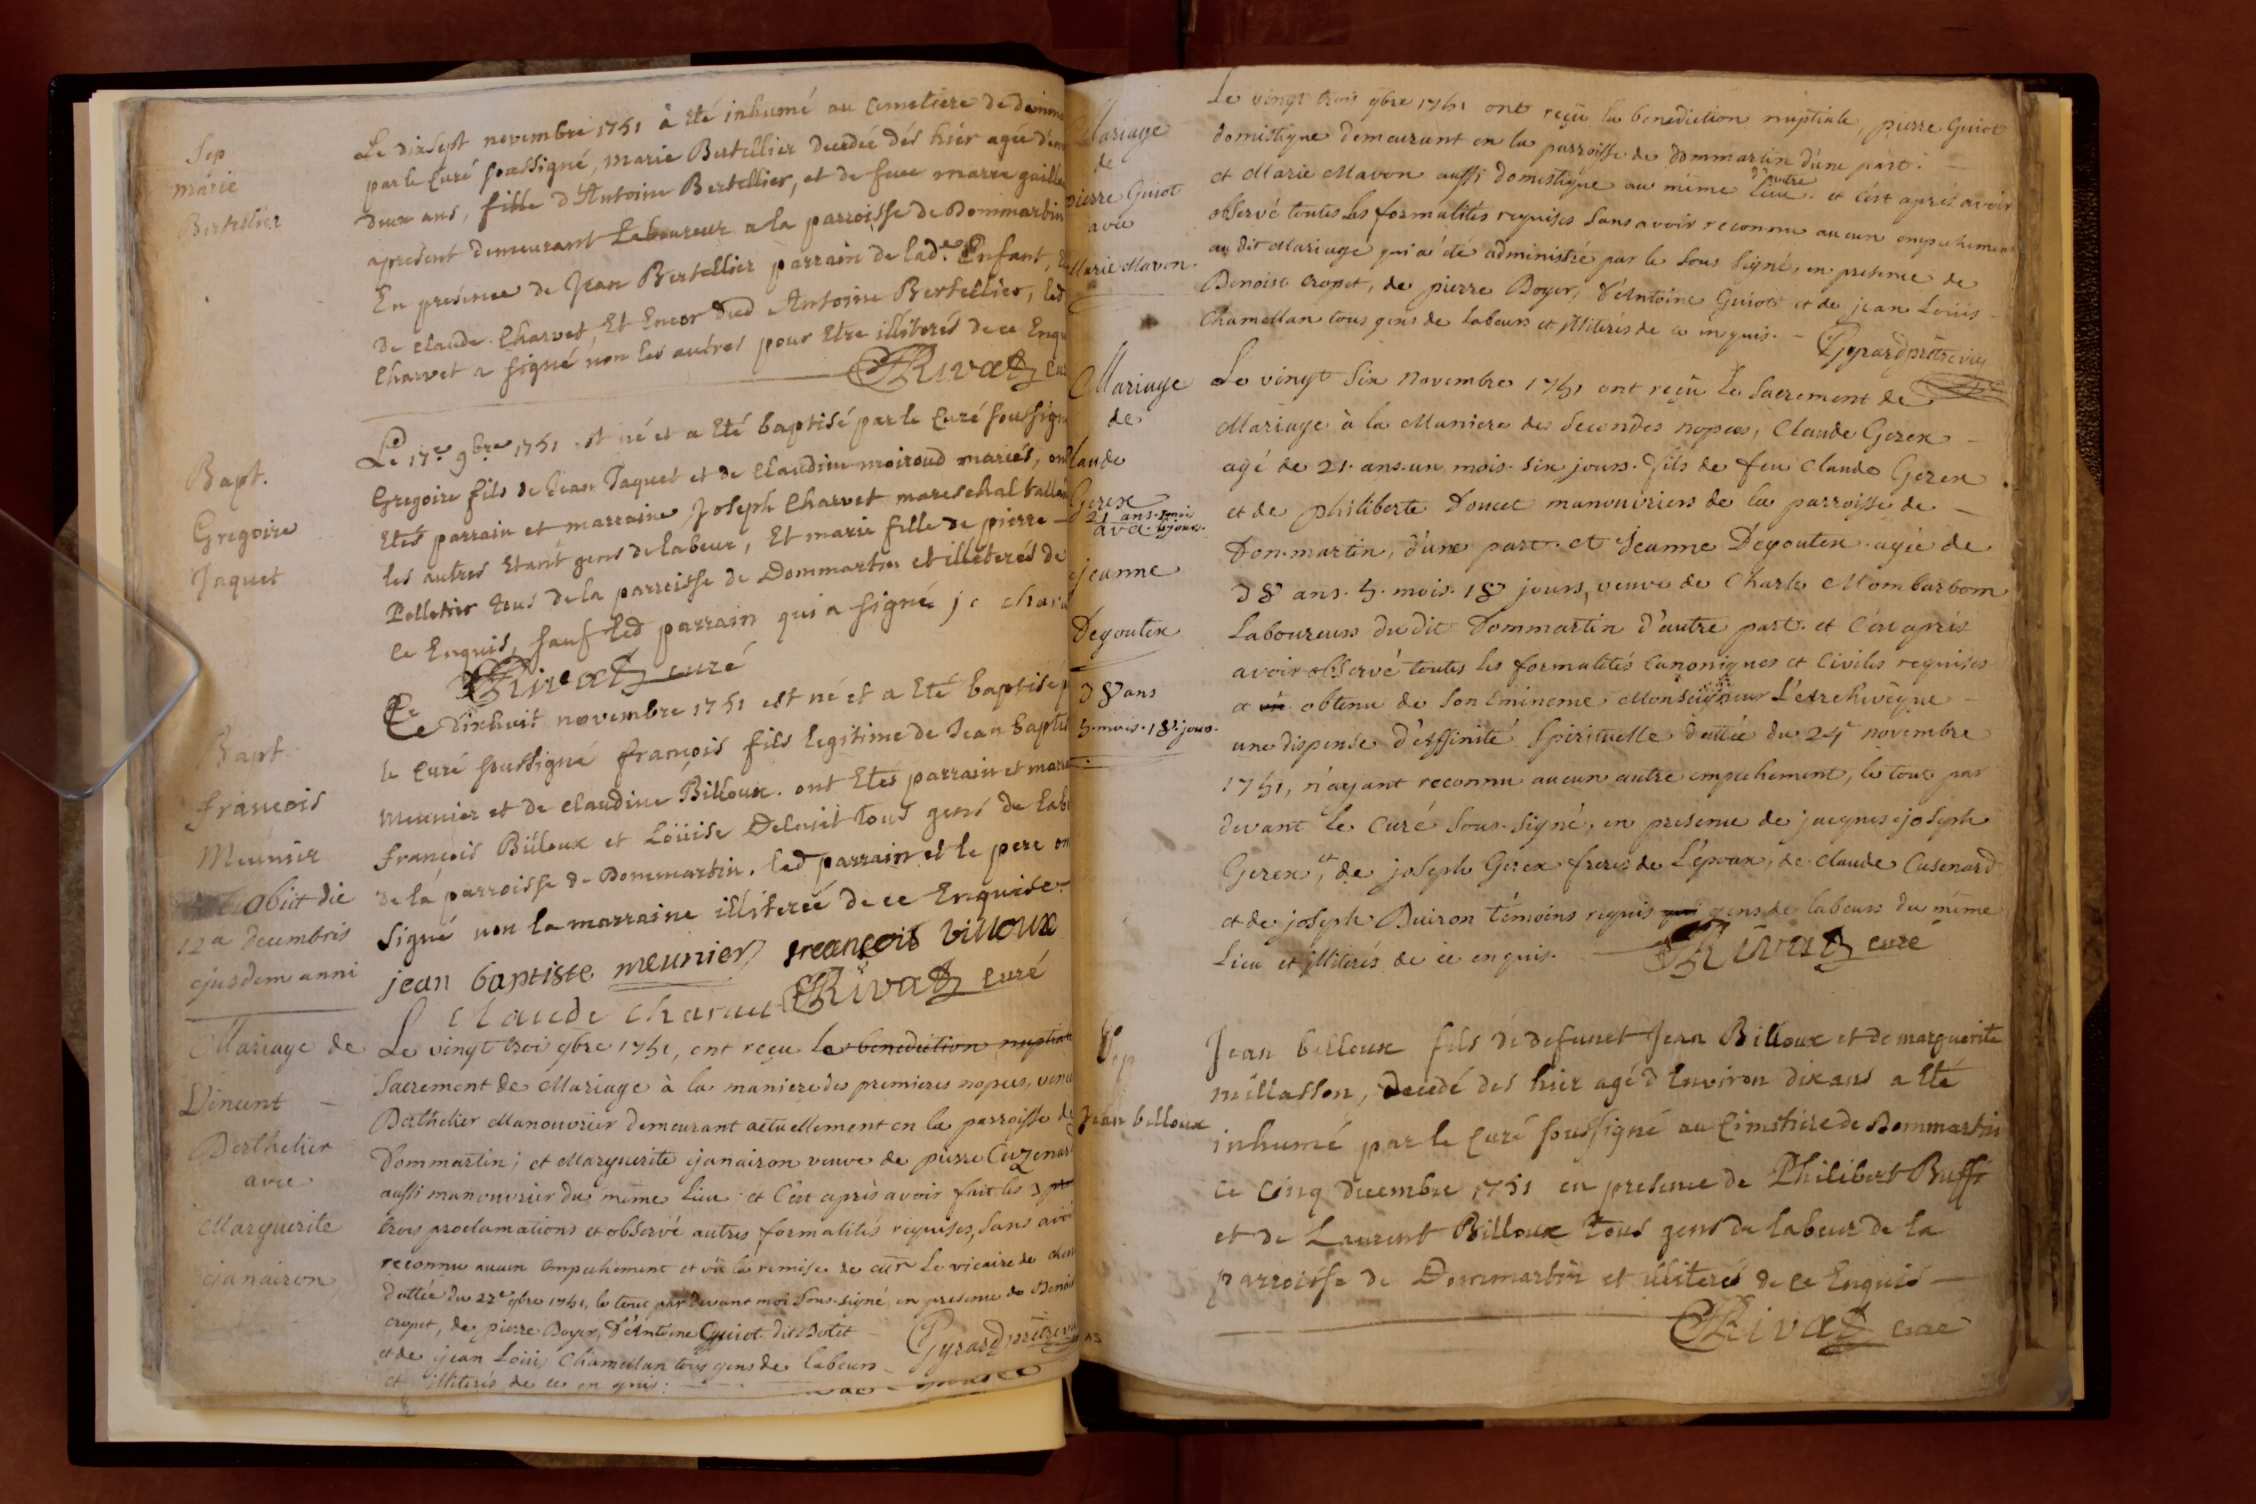 Sep
marie
Bertelier
Le dixsept novembre 1751 à eté inhumé au Cemetiere de
par le Curé soussigné, marie Bertellier decedée dés hier agée
deux ans, fille d'Antoine Bertellier, et de feue marie
apresent demeurant Laboureur a la parroisse de Dommartin
En presence de Jean Bertellier parrain de lad.e Enfant,
de claude Charvet, Et Encor dud Antoine Bertellier, led
Charvet a signé non les autres pour Etre illiterés de ce
Rivat
Bapt.
Gregoire
Jaquet
Le 17e 9bre 1751 est né et a eté baptisé par le Curé
Gregoire fils de Jean Jaquet et de Claudine moiroud mariés,
Etés parrain et marraine Joseph Charvet mareschal
les autres Etant gens de labeur, Et marie fille de pierre
Pelletier tous de la parroisse de Dommartin et illeterés de
ce Enquis, sauf led parrain qui a signé
Rivat curé
Bapt.
françois
Meunier
obiit die
12a decembris
ejusdem anni
Le dixhuit novembre 1751 est né et a eté baptisé
le Curé soussigné françois fils legitime de Jean
Meunier et de claudine Billoux. ont Etés parrain et
françois Billoux et Loüise tous gens de
de la parroisse de Dommartin. led parrain et le pere
signé non la marraine illiterée de ce Enquise.
jean baptiste meunier françois billoux
Claude Rivat curé
Mariage de
Vincent
Berthelier
avec
Marguerite
janairon
Le vingt 9bre 1751, ont reçu le benediction
sacrement de Mariage à la maniere des premieres nopces,
Berthelier Manouvrier demeurant actuellement en la parroisse
Dommartin; et Marguerite janairon veuve de pierre
aussi manouvrier du même lieu: et c'est après avoir fait les 3
trois proclamations et observé autres formalités requises, sans
reconnu aucun empechement et vû la remise de Le vicaire de
dattée du 22e 9bre 1751, le tout par devant moi sous-signé, en presence de
cropet, de pierre Boyer, d'Antoine Guiot dit
et de jean Loüis Chamellan tous gens de labeurs
et illiterés de ce enquis:
Gyrard
Mariage
de
pierre Guiot
avec
Marie Mavon
Le vingt trois 9bre 1751 ont reçu la benediction nuptiale, pierre Guiot
domistique demeurant en la parroisse de dommartin d'une part:
et Marie Mavon aussi domestique au même lieu d'autre. et c'est aprés avoir
observé toutes les formalités requises sans avoir reconnu aucun
au dit Mariage qui a été administré par le sous signé, en presence de
Benoist cropet, de pierre Boyer, d'Antoine Guiot et de jean Loüis
Chamellan tous gens de labeurs et illiterés de ce enquis.
Gyrard
Mariage
de
Claude
Gerex
21 ans
avec
jeanne
Degoutex
38 ans
5. mois. 18. jours.
Le vingt six Novembre 1751 ont reçu Le Sacrement de
Mariage à la Maniere des secondes nopces, Claude Gerex
agé de 21. ans. un mois. six jours. fils de feu Claude Gerex
et de philiberte Doucet manouvriers de la parroisse de
Dommartin, d'une part. et Jeanne Degoutex agée de
38 ans. 5. mois. 18 jours, veuve de Charle Mombarbom
Laboureurs du dit Dommartin d'autre part. et c'est après
avoir observé toutes les formalités Canoniques et Civiles requises
et obtenu de son Eminence Monseigneur L'archevêque
une dispense d'affinité Spirituelle dattée du 24e novembre
1751, n'ayant reconnu aucun autre empechement, le tout par
devant le Curé sous-signé, en presence de jacques-joseph
Gerex, et de joseph Gerex freres de L'époux, de Claude Casenard
et de joseph Buiron témoins requis gens de labeurs du même
Lieu et illiterés de ce enquis.
Rivat curé
Sep
Jean billoux
Jean billoux fils de defunct Jean Billoux et de marguerite
millasson, decedé des hier agé d Environ dix ans a eté
inhumé par le Curé soussigné au Cimetiere de Dommartin
ce Cinq decembre 1751 en presence de Philibert Buffi
et de Laurent Billoux tous gens de labeur de la
parroisse de Dommartin et illiterés de ce Enquis
Rivat curé